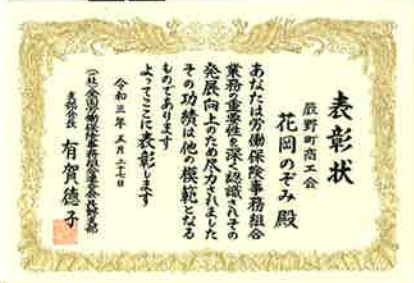 表彰状
辰野町商工会
花岡のぞみ殿
あなたは労働保険事務組合
業務の重要性を深く認識されその
発展向上のため尽力されました
その功績は他の模範となる
ものであります
よってここに表彰します
令和三年 五月二十七日
(一社)全国労働保険事務組合連合会長野支部
支部会長 有賀徳子